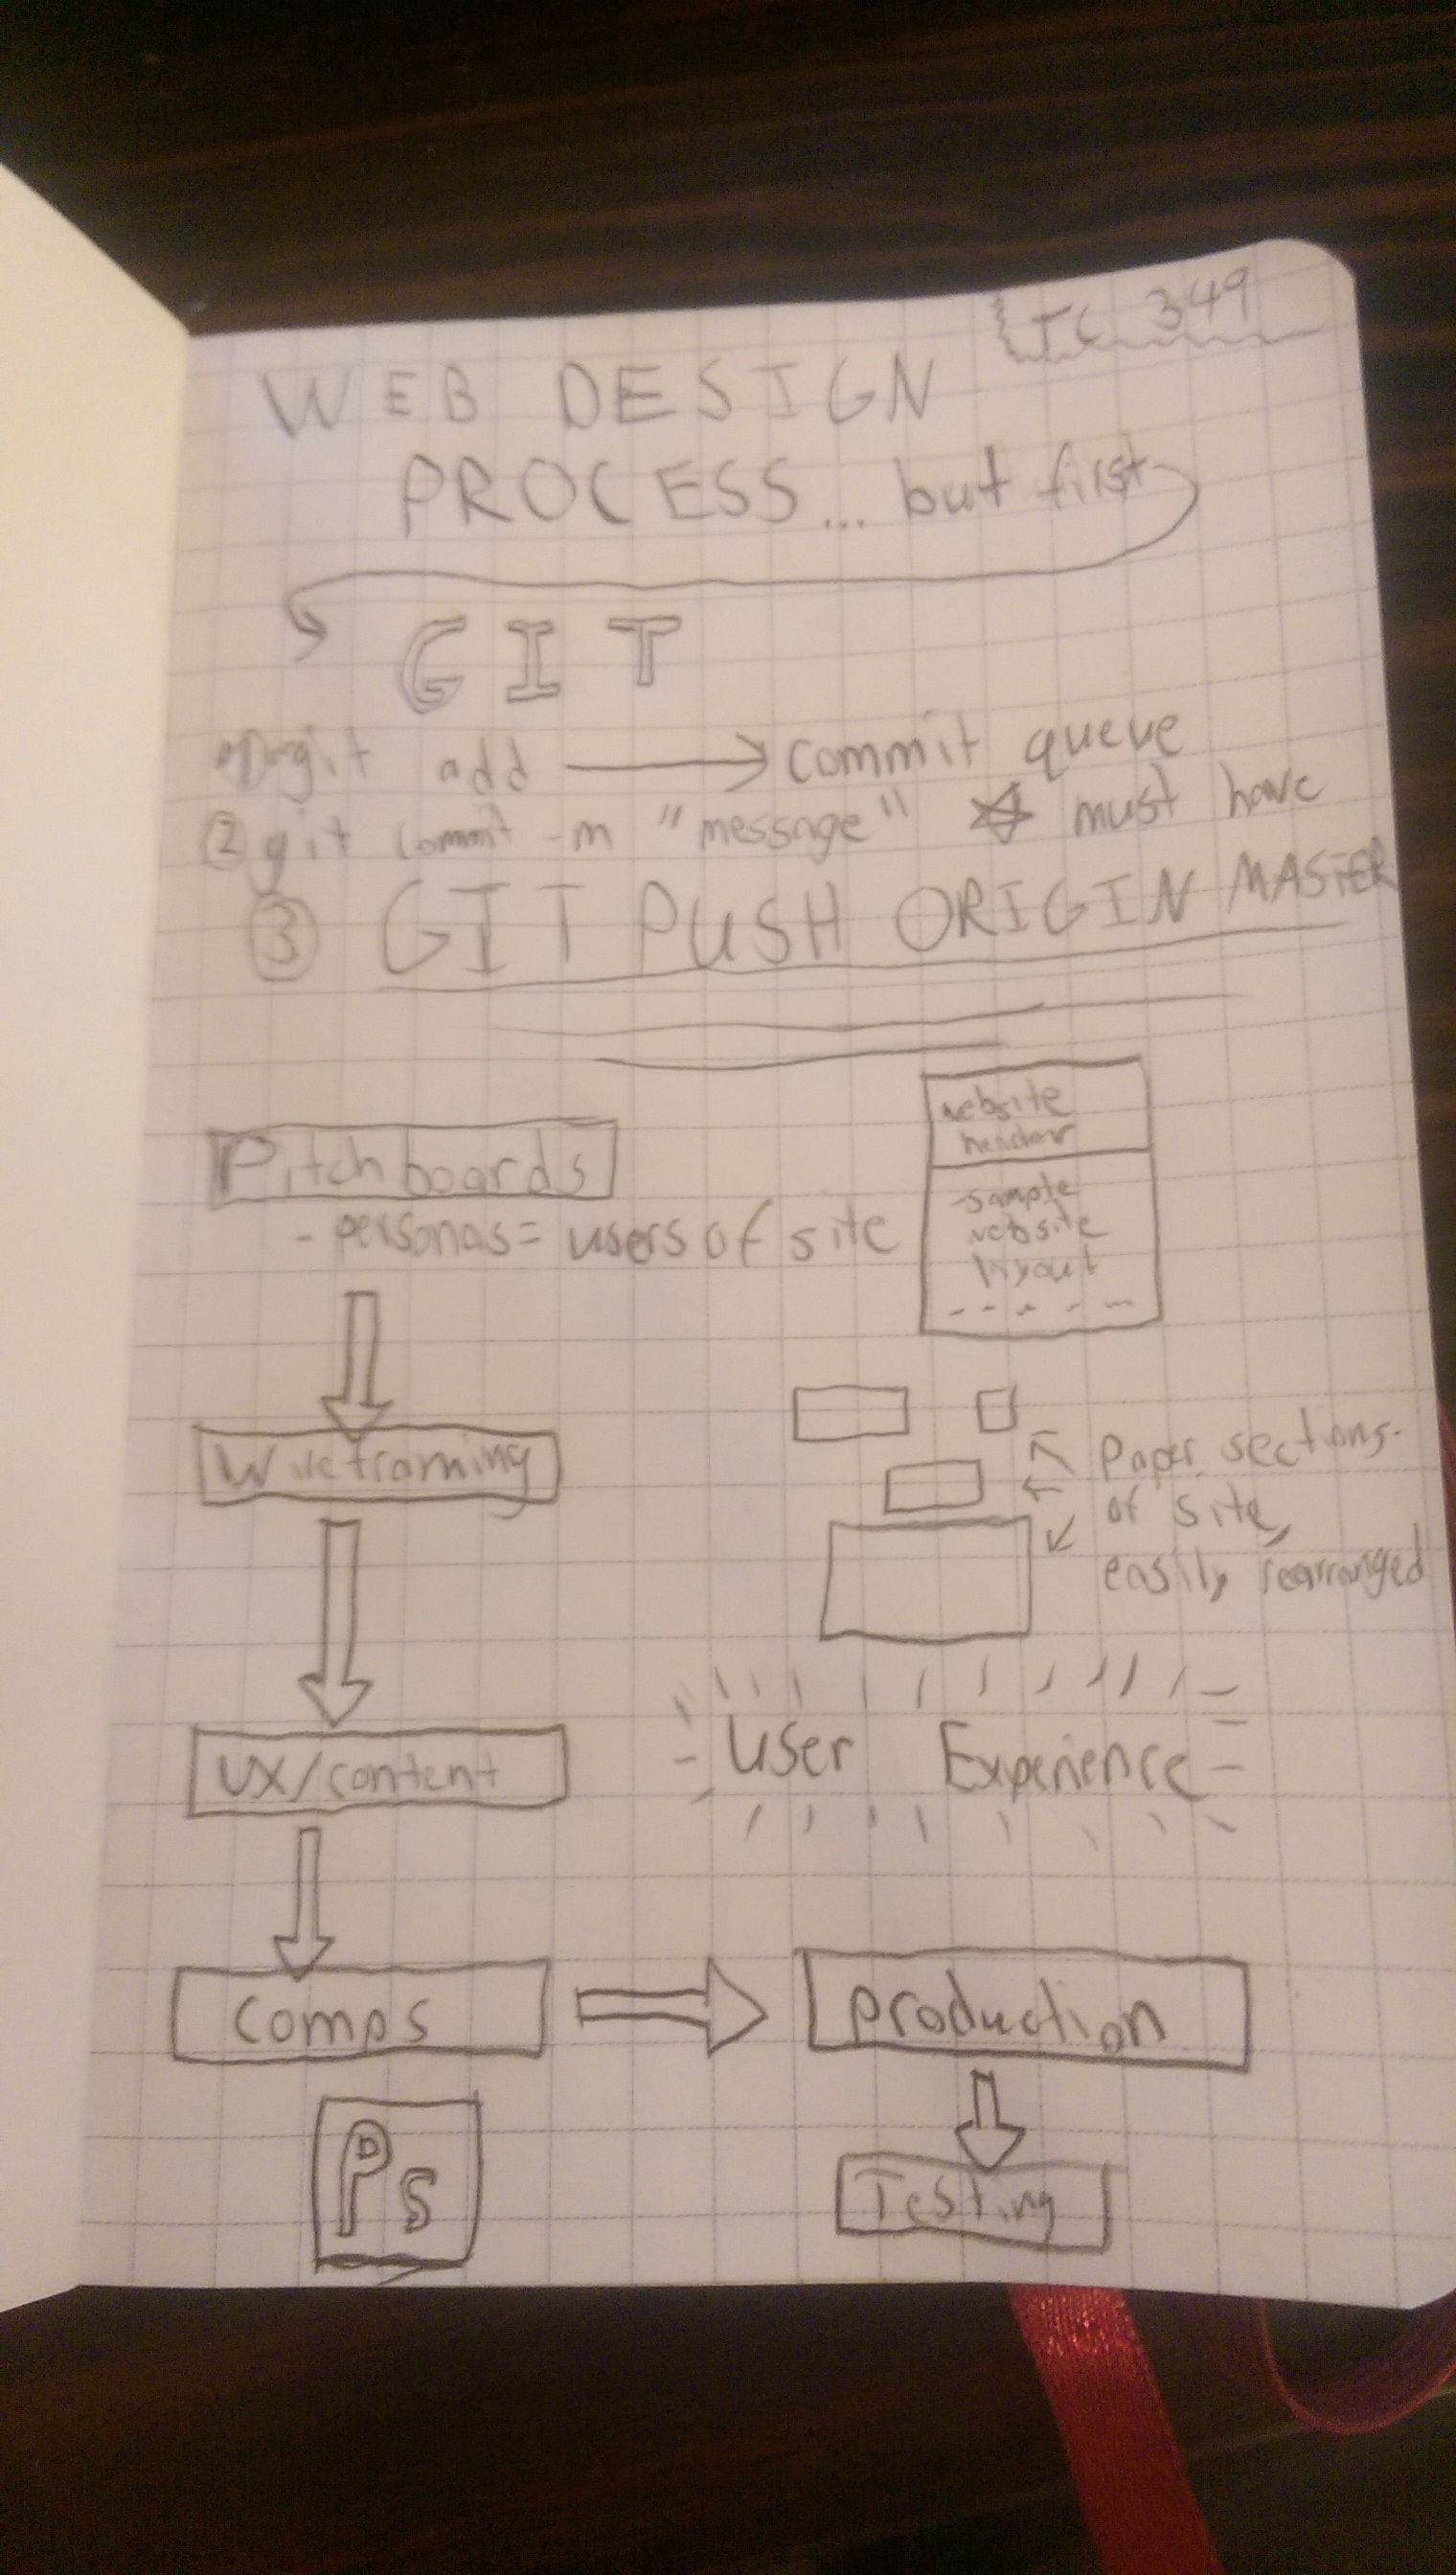 TC 349
WEB DESIGN
PROCESS... but first
GIT
① git add → commit queue
② git commit -m "message" ☆ must have
③ GIT PUSH ORIGIN MASTER
website
header
Pitchboards
- sample
website
layout
- personas = users of site
Wireframing
Paper sections
of site,
easily rearranged
UX/content
User Experience
Comps
production
Ps
Testing